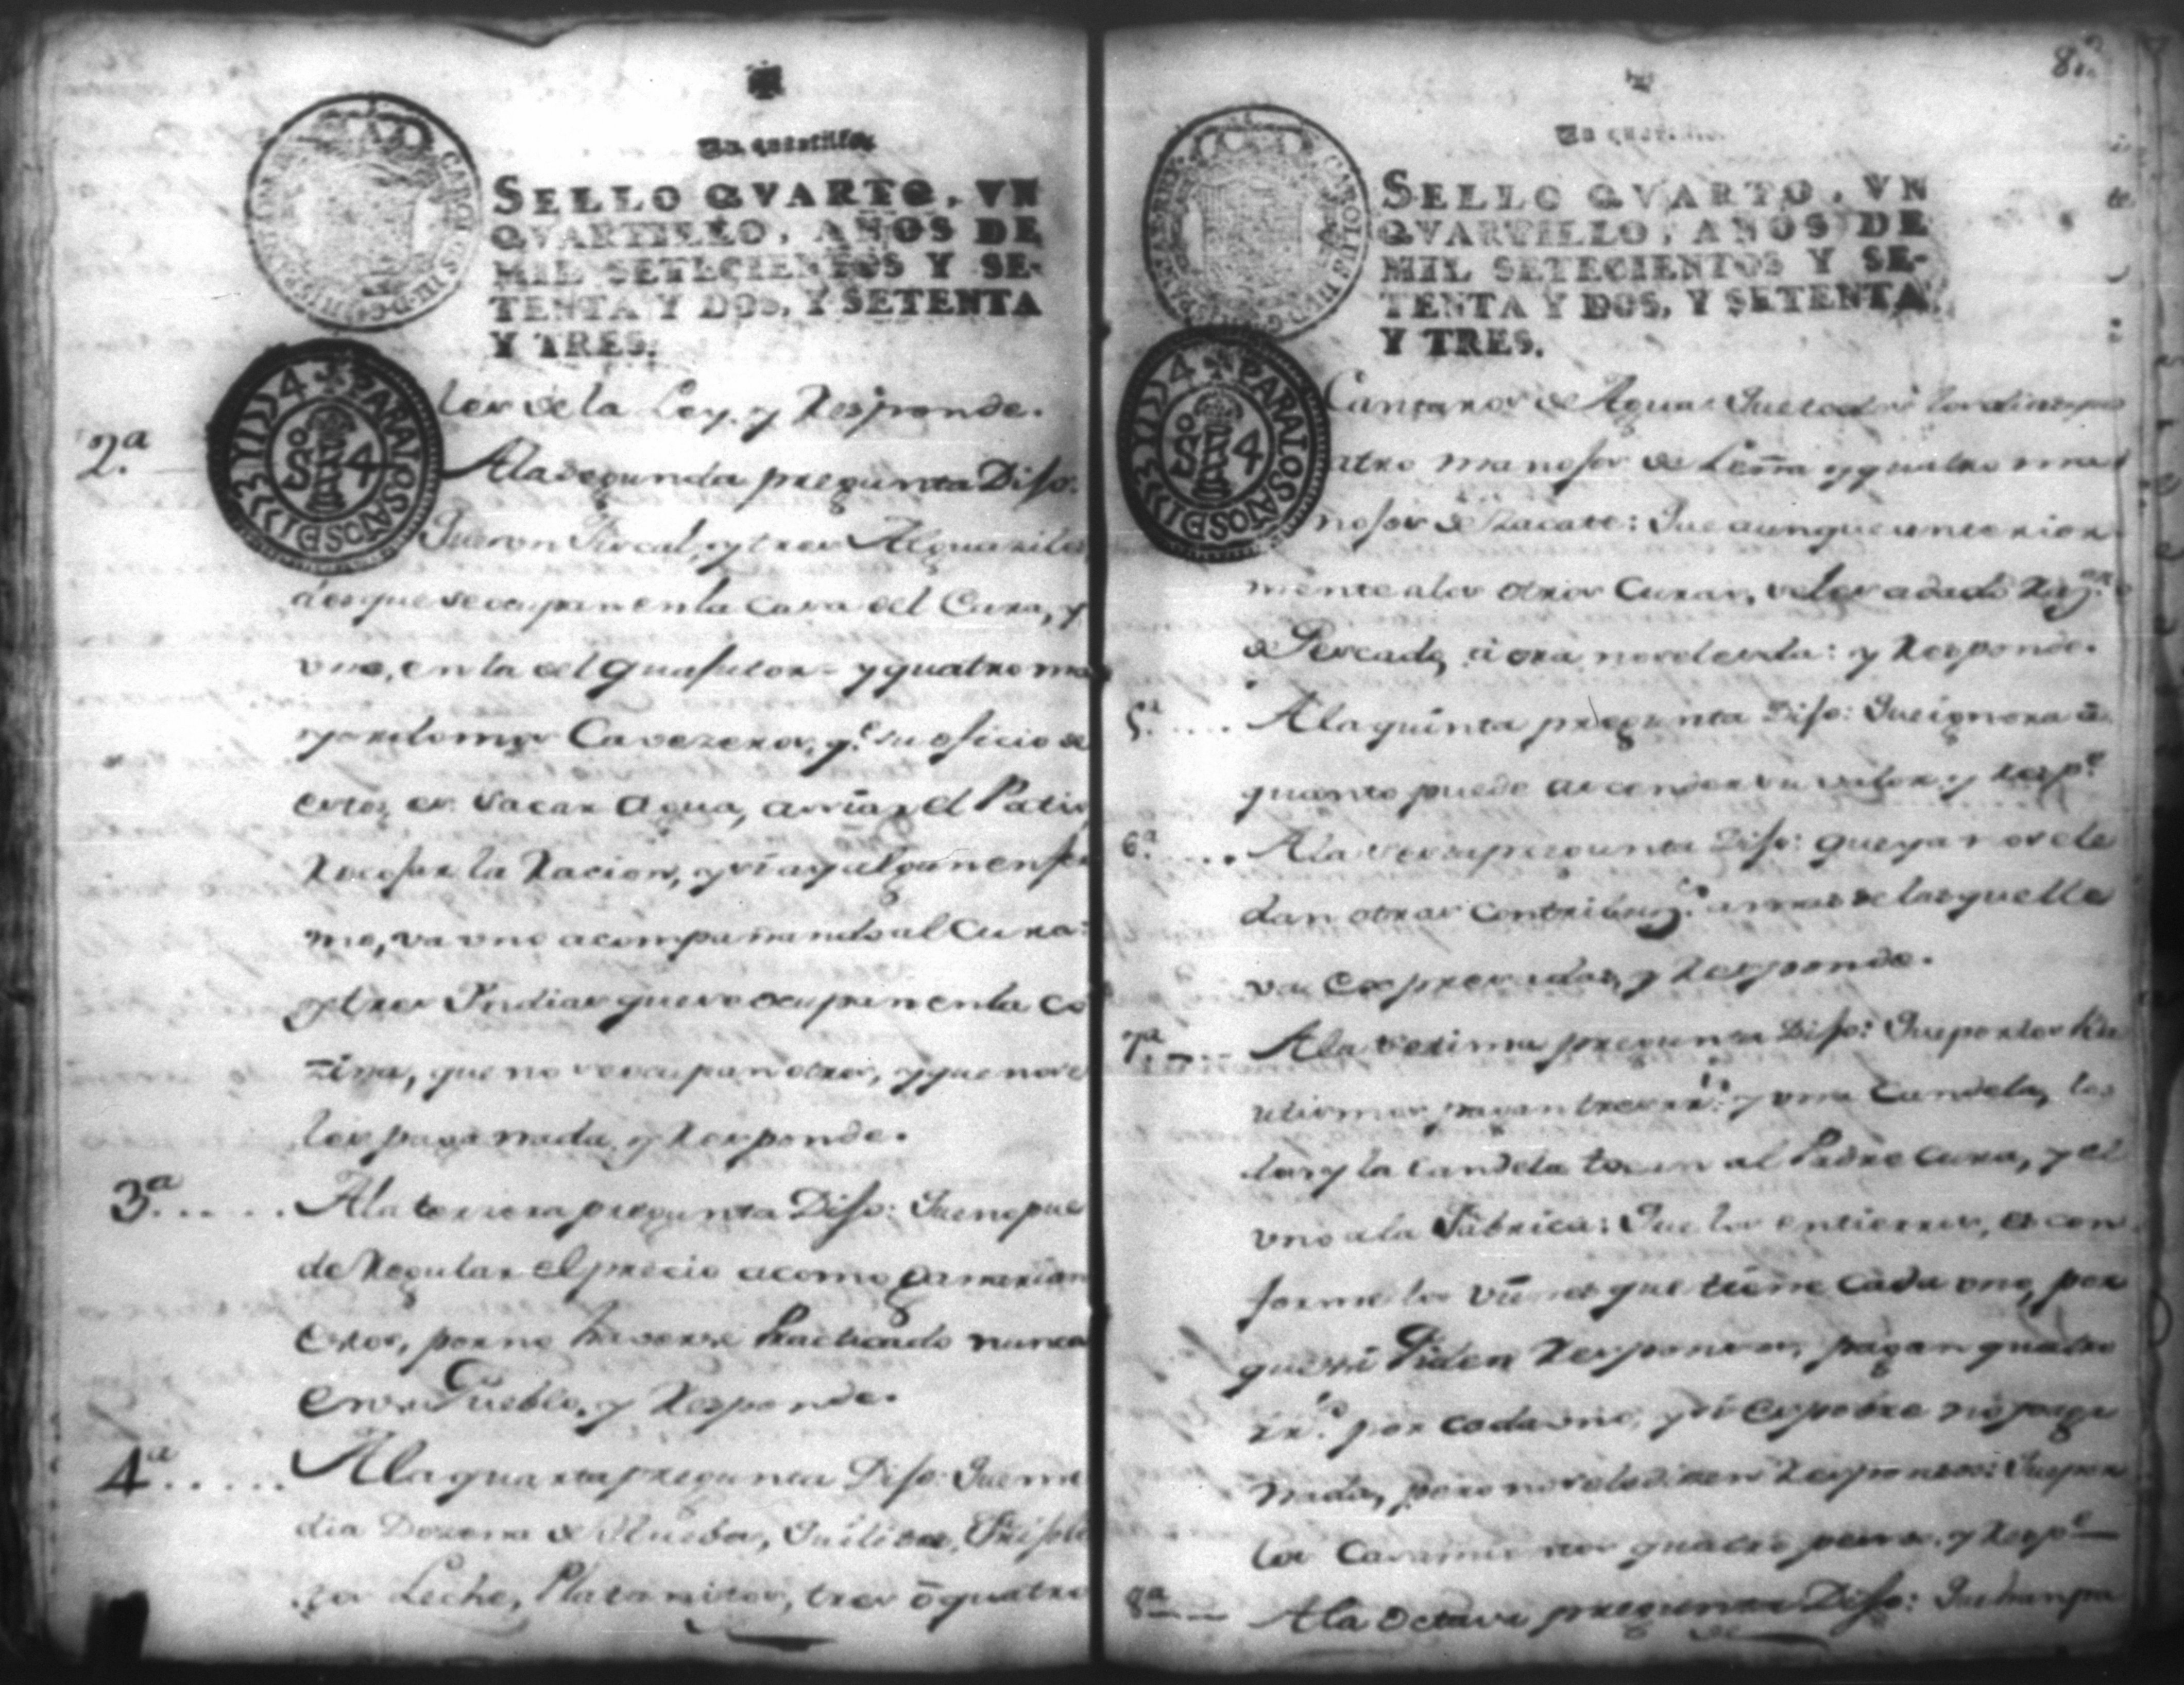 Un quartillo.
SELLO QVARTO, VN
QVARTILLO, AÑOS DE
MIL SETECIENTOS Y SE-
TENTA Y DOS, Y SETENTA
Y TRES.
PARA LOS AÑOS DE 1773 Y 1774
So 4
les de la Ley, y Responde.
2.a A la segunda pregunta Dijo:
Que un Fiscal, y tres Alguaziles
los que se ocupan en la Casa del Cura, y
uno, en la del quasutor - y quatro ma
yordomos Cavezeros, q.e su oficio de
estos, es sacar agua, asear el Patio
Recojer la Racion, y si ay algun enfer
mo, va uno acompañando al Cura:
y tres Indias que se ocupan en la Co
zina, que no se ocupan otros, y que no se
les paga nada, y Responde.
3.a A la tercera pregunta Dijo: Que no pue
de Regular el precio a como ganarian
Estos, por no haverse Practicado nunca
en su Pueblo, y Responde.
4.a A la quarta pregunta Dijo: Que me
dia Dozena de Huebos, Frijole
Leche, Platanitos, tres ô quatro
8
Un quartillo.
SELLO QVARTO, VN
QVARTILLO, AÑOS DE
MIL SETECIENTOS Y SE-
TENTA Y DOS, Y SETENTA
Y TRES.
CAROLUS III
PARA LOS AÑOS DE 1773 Y 1774
So 4
Cantaros de Agua: Que todos los dias
atro manojos de Leña y quatro ma
nojos de Zacate: Que aunque anterior
mente a los otros Curas, se les a dado Raz.on
de Pescado, aora no se les da: y Responde.
5.a A la quinta pregunta Dijo: Que ignora â
quanto puede ascender su valor, y Resp.e
6.a A la sexta pregunta Dijo: que ya no se le
dan otras contribuz.s a mas de las que lle
va Expresadas, y Responde.
7.a A la septima pregunta Dijo: Que por los Ba
utismos pagan tres rr.s y una Candela, los
dos y la Candela tocan al Padre Cura, y el
uno a la Fabrica: Que los entierros, es con
forme los vienes que tiene cada uno, por
que si Piden Responsos, pagan quatro
rr.s por cada uno, y si es pobre no paga
nada, pero no se le dicen Responsos: Que por
los Casamientos quatro pesos. y Resp.e
8.a A la Octava pregunta Dijo: Que han pa